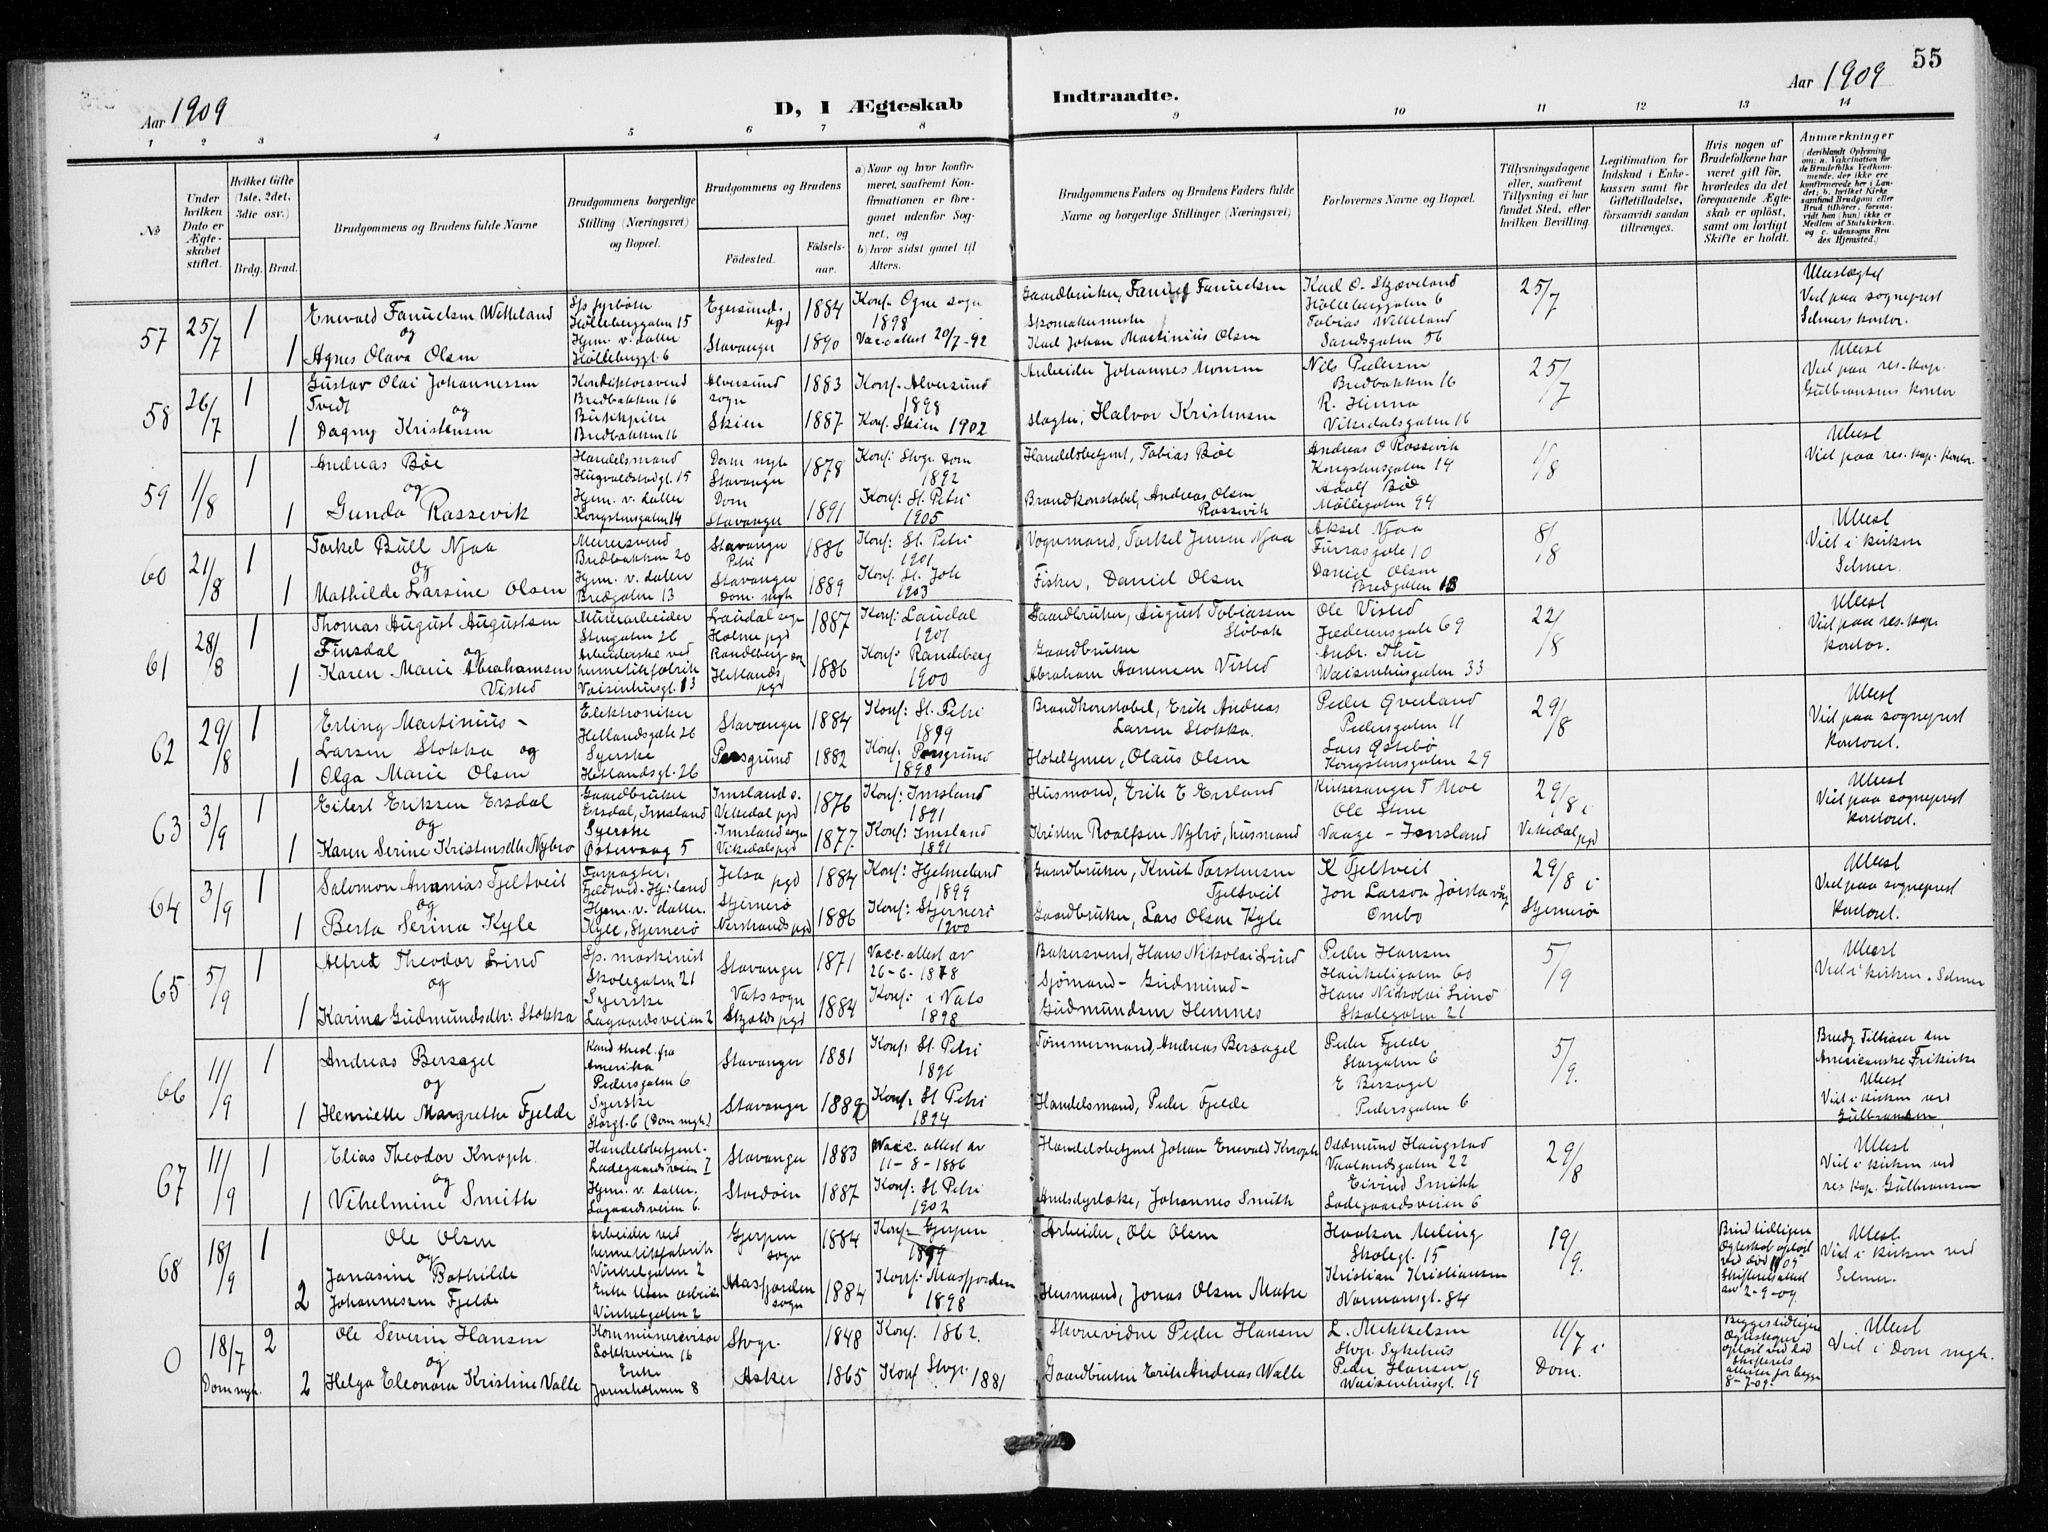 55
Aar 1909
D, I Ægteskab Indtraadte.
Aar 1909
1 2 3 4 5 6 7 8 9 10 11 12 13 14
No
Under hvilken Dato er Ægteskabet stiftet.
Hvilket Gifte (1ste, 2det, 3die osv.)
Brdg. Brud.
Brudgommens og Brudens fulde Navne
Brudgommens borgerlige Stilling (Næringsvei) og Bopæl.
Brudgommens og Brudens
Fødested.
Fødselsaar.
a) Naar og hvor konfirmeret, saafremt Konfirmationen er foregaaet udenfor Sognet, og
b) hvor sidst gaaet til Alters.
Brudgommens Faders og Brudens Faders fulde Navne og borgerlige Stillinger (Næringsvei)
Forlovernes Navne og Bopæl.
Tillysningsdagene eller, saafremt Tillysning ei har fundet Sted, efter hvilken Bevilling.
Legitimation for Indskud i Enkekassen samt for Giftetilladelse, forsaavidt saadan tiltrænges.
Hvis nogen af Brudefolkene har været gift før, hvorledes da det foregaaende Ægteskab er opløst, samt om lovligt Skifte er holdt.
Anmærkninger
(deriblandt Oplysning om: a. Vaccination for de Brudefolks Vedkommende, der ikke ere konfirmerede her i Landet; b. hvilket Kirkesamfund Brudgom eller Brud tilhører, forsaavidt han (hun) ikke er Medlem af Statskirken, og c. udensogns Brudes Hjemsted.)
57 25/7 1 Enevald Fanuelsen Wetteland
og
1 Agnes Olava Olsen
Sp. fyrbøter
Hølleberggaten 15
Hjem. v. datter
Hølleberggt. 6
Egersund pgd 1884
Stavanger 1890
Konf. Ogne sogn
1898
Vacc. attest 20/7-92
Gaardbruker, Fanuel Fanuelsen
Skomakermester
Karl Johan Martinius Olsen
Karl O. Skjæveland
Hølleberggaten 6
Tobias Wetteland
Sandsgaten 56
25/7
Ubeslægtet
Viet paa sogneprest
Selmers kontor.
58 26/7 1 Gustav Olai Johannessen
Tvedt og
1 Dagny Kristensen
Konditorsvend
Bredbakken 16
Butikkpike
Bredbakken 16
Alversund sogn 1883
Skien 1887
Konf. Alversund
1898
Konf. Skien 1902
Arbeider Johannes Monsen
Slagter, Halvor Kristensen
Nils Pedersen
Bredbakken 16
R. Hinna
Vikedalsgaten 16
25/7
Ubesl
Viet paa res. kap.
Gulbransens kontor
59 1/8 1 Andreas Bøe
og
1 Gunda Rossevik
Handelsmand
Hjem. v. datter
Kongstensgaten 14
Dom mgh Stavanger 1878
Dom Stavanger 1891
Konf: Stvgr Dom
1892
Konf: St. Petri
1905
Handelsbetjent, Tobias Bøe
Brandkonstabel, Andreas Olsen
Rossevik
Andreas O Rossevik
Kongstensgaten 14
Adolf Bøe
Møllegaten 94
1/8
Ubesl
Viet paa res. kap. kontor.
60 21/8 1 Torkel Bull Njaa
og
1 Mathilde Larsine Olsen
Murersvend
Bredbakken 20
Hjem. v. datter
Bredgaten 13
Stavanger Petri 1886
Stavanger Dom. mgh 1889
Konf: St. Petri
1901
Konf. St. Joh
1903
Vognmand, Torkel Jensen Njaa
Fisker, Daniel Olsen
Aksel Njaa
Furrasgate 10
Daniel Olsen
Bredgaten 13
8/8
Ubesl
Viet i kirken
Selmer.
61 28/8 1 Thomas August Augustsen
Finsdal og
1 Karen Marie Abrahamsen
Visted
Murerarbeider
Stengaten 26
Arbeiderske ved
hermetikfabrik
Vaisenhusgt. 33
Laudal sogn Holme pgd 1887
Randeberg sogn Hetlands pgd 1886
Konf: Laudal
1901
Konf: Randeberg
1900
Gaardbruker, August Tobiassen
Gaardbruker
Abraham Aanensen Visted
Ole Visted
Jæderensgate 69
Andr. Thu
Waisenhusgaten 33
22/8
Ubesl
Viet paa res. kap.
kontor.
62 29/8 1 Erling Martinius-
Larsen Stokka og
1 Olga Marie Olsen
Elektroniker
Hetlandsgate 26
Syerske
Hetlandsgt. 26
Stavanger 1884
Porsgrund 1882
Konf: St. Petri
1899
Konf: Porsgrund
1898
Brandkonstabel, Erik Andreas
Larsen Stokka.
Hoteltjener, Olaus Olsen
Peder Qverland
Pedersgaten 11
Lars Østebø
Kongstensgaten 29
29/8
Ubesl
Viet paa sogneprest
kontoret.
63 3/9 1 Eilert Eriksen Ersdal
og
1 Karen Serine Kristensdtr Nybro
Gaardbruker
Ersdal, Imsland
Syerske
Østervaag 5
Imsland s. Vikedal pgd 1876
Imsland sogn Vikedals pgd 1877.
Konf: Imsland
1891
Konf: Imsland
1891
Husmand, Erik E Ersland
Kristen Roalfsen Nybro, husmand
Kirkesanger T Moe
Ole Stene
Vaage - Imsland
29/8 i
Vikedal pgd
Ubesl
Viet paa sogneprest
kontoret.
64 3/9 1 Salomon Ananias Fjeltveit
og
1 Berta Serina Kyle
Forpagter,
Fjeldtvedt-Hj:land
Hjem. v. datter.
Kyle, Stjernerø
Jelsa pgd 1884
Stjernerø Nerstrands pgd 1886
Konf: Hjelmeland
1899
Konf: Stjernerø
1900
Gaardbruker, Knut Torstensen
Fjeltveit
Gaardbruker, Lars Olsen Kyle
K Fjeltveit
Jon Larson Jørstavåg
Ombo
29/8 i
Stjernerø
Ubesl
Viet paa sogneprest
kontoret.
65 5/9 1 Alfred Theodor Lind
og
1 Karine Gudmundsdtr: Stokka
Sp. maskinist
Skolegaten 21
Syerske
Lagaardsveien 2
Stavanger 1871
Vats sogn Skjolds pgd 1884
Vacc. attest av
26-6-1878
Konf: i Vats
1898
Bakersvend, Hans Nikolai Lind
Sjømand - Gudmund-
Gudmundsen Hemnes
Peder Hansen
Haukeligaten 60
Hans Nikolai Lind
Skolegaten 21
5/9
Ubesl
Viet i kirken. Selmer
66 11/9 1 Andreas Bersagel
og
1 Henriette Margrethe Fjelde
Kand. theol. fra
Amerika
Pedersgaten 6
Syerske
Storgt. 6 (Dom mgh.)
Stavanger 1881
Stavanger
Konf: St. Petri
1896
Konf: St Petri
1894
Tømmermand, Andreas Bersagel
Handelsmand, Peder Fjelde
Peder Fjelde
Storgaten 6
E Bersagel
Pedersgaten 6
5/9.
Brudg tilhører den
Amerikanske Frikirke
Ubesl
Viet i kirken ved
Gulbransen.
67 11/9 1 Elias Theodor Knoph.
og
1 Vihelmine Smith
Handelsbetjent.
Ladegaardsveien 7
Hjem. v. datter.
Lagaardsveien 6.
Stavanger 1883
Stordøen 1887
Vacc. attest av
11-8-1886
Konf: St Petri
1902
Handelsbetjent Johan Enevald Knoph
Amtsdyrlæke, Johannes Smith
Oddmund Haugstad
Vaalandsgaten 22
Eivind Smith
Ladegaardsveien 6
29/8
Ubesl
Viet i kirken ved
res kap. Gulbransen
68 18/9 1 Ole Olsen
og
2 Jonasine Bothilde
Johannessen Fjelde
Arbeider ved
hermetikfabrik
Vinkelgaten 2
Enke Uten arbeide
Vinkelgaten 2
Gjerpen sogn 1884
Masfjorden sogn 1884
Konf - Gjerpen
1899
Konf: Masfjorden
1898
Arbeider, Ole Olsen
Husmand, Jonas Olsen Matre
Haakon Meling
Skolegt. 15
Kristian Kristiansen
Normansgt. 84
19/9.
Brud tidligere
Ægteskab opløst
ved død
Skifteattest
av 2-9-09.
Ubesl
Viet i kirken ved
Selmer.
0 18/7 Dom mgh. 2 Ole Severin Hansen
og
2 Helga Eleonora Kristine Valle
Kommunerevisor
Løkkeveien 16
Enke
Jorenholmen 8
Stvgr. 1848
Asker 1865
Konf. 1862.
Konf Stvgr. 1881
Skrevidne Peder Hansen
Gaardbruker Erik Andreas Walle
L. Mikkelsen
Stvgr. Sykehus
Peder Hansen
Waisenhusgt. 19
11/7 i
Dom.
Begges tidligere
Ægteskaper
opløst ved død
Skifteattester for begge
8-7-09.
Ubesl
Viet i Dom mgh.